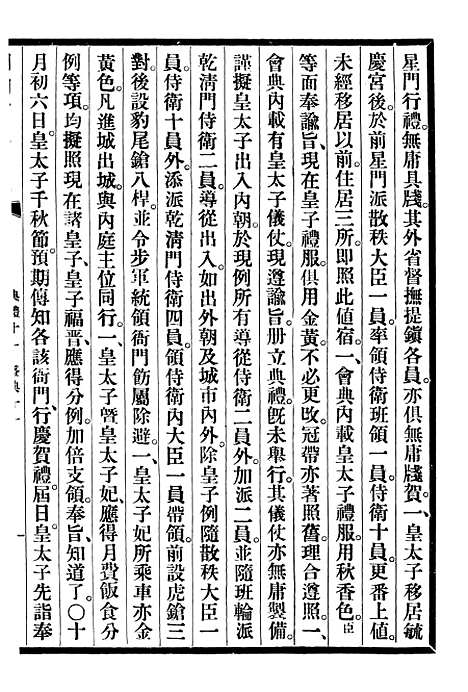 星門行禮。無庸具牋。其外省督撫提鎭各員。亦俱無庸牋賀。一、皇太子移居毓
慶宮後。於前星門派散秩大臣一員。率領侍衛班領一員。侍衛十員。更番上値。
未經移居以前。住居三所。卽照此値宿。一、會典內載皇太子禮服。用秋香色。臣
等面奉諭旨。現在皇子禮服。俱用金黃。不必更改。冠帶亦著照舊。理合遵照。一、
會典內載有皇太子儀仗。現遵諭旨。册立典禮。旣未舉行。其儀仗亦無庸製備。
謹擬皇太子出入內朝。於現例所有導從侍衛二員外。加派二員。並隨班輪派
乾淸門侍衛二員。導從出入。如出外朝及城市內外。除皇子例隨散秩大臣一
員。侍衛十員外。添派乾淸門侍衛四員。領侍衛內大臣一員帶領。前設虎鎗三
對。後設豹尾鎗八桿。並令步軍統領衙門飭屬除避。一、皇太子妃所乘車亦金
黃色。凡進城出城。與內庭主位同行。一、皇太子曁皇太子妃。應得月費飯食分
例等項。均擬照現在諸皇子、皇子福晋。應得分例。加倍支領。奉旨、知道了。〇十
月初六日。皇太子千秋節。預期傳知各該衙門。行慶賀禮。屆日皇太子先詣奉
典禮十一